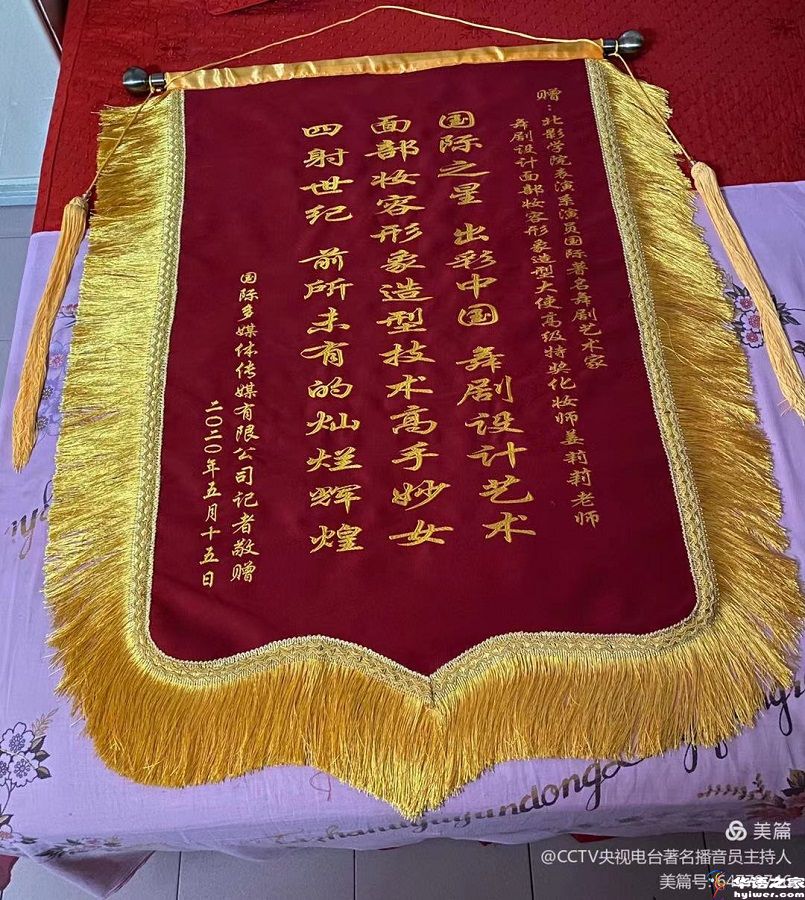 赠：北影学院表演系演员国际著名舞剧艺术家
舞剧设计面部妆容形象造型大使高级特奖化妆师姜莉莉老师
国际之星 出彩中国 舞剧设计艺术
面部妆容形象造型技术高手妙女
四射世纪 前所未有的灿烂辉煌
国际多媒体传媒有限公司记者敬赠
二〇二〇年五月十五日
美篇
@CCTV央视电台著名播音员主持人
美篇号:
华语之家
hyiwer.com